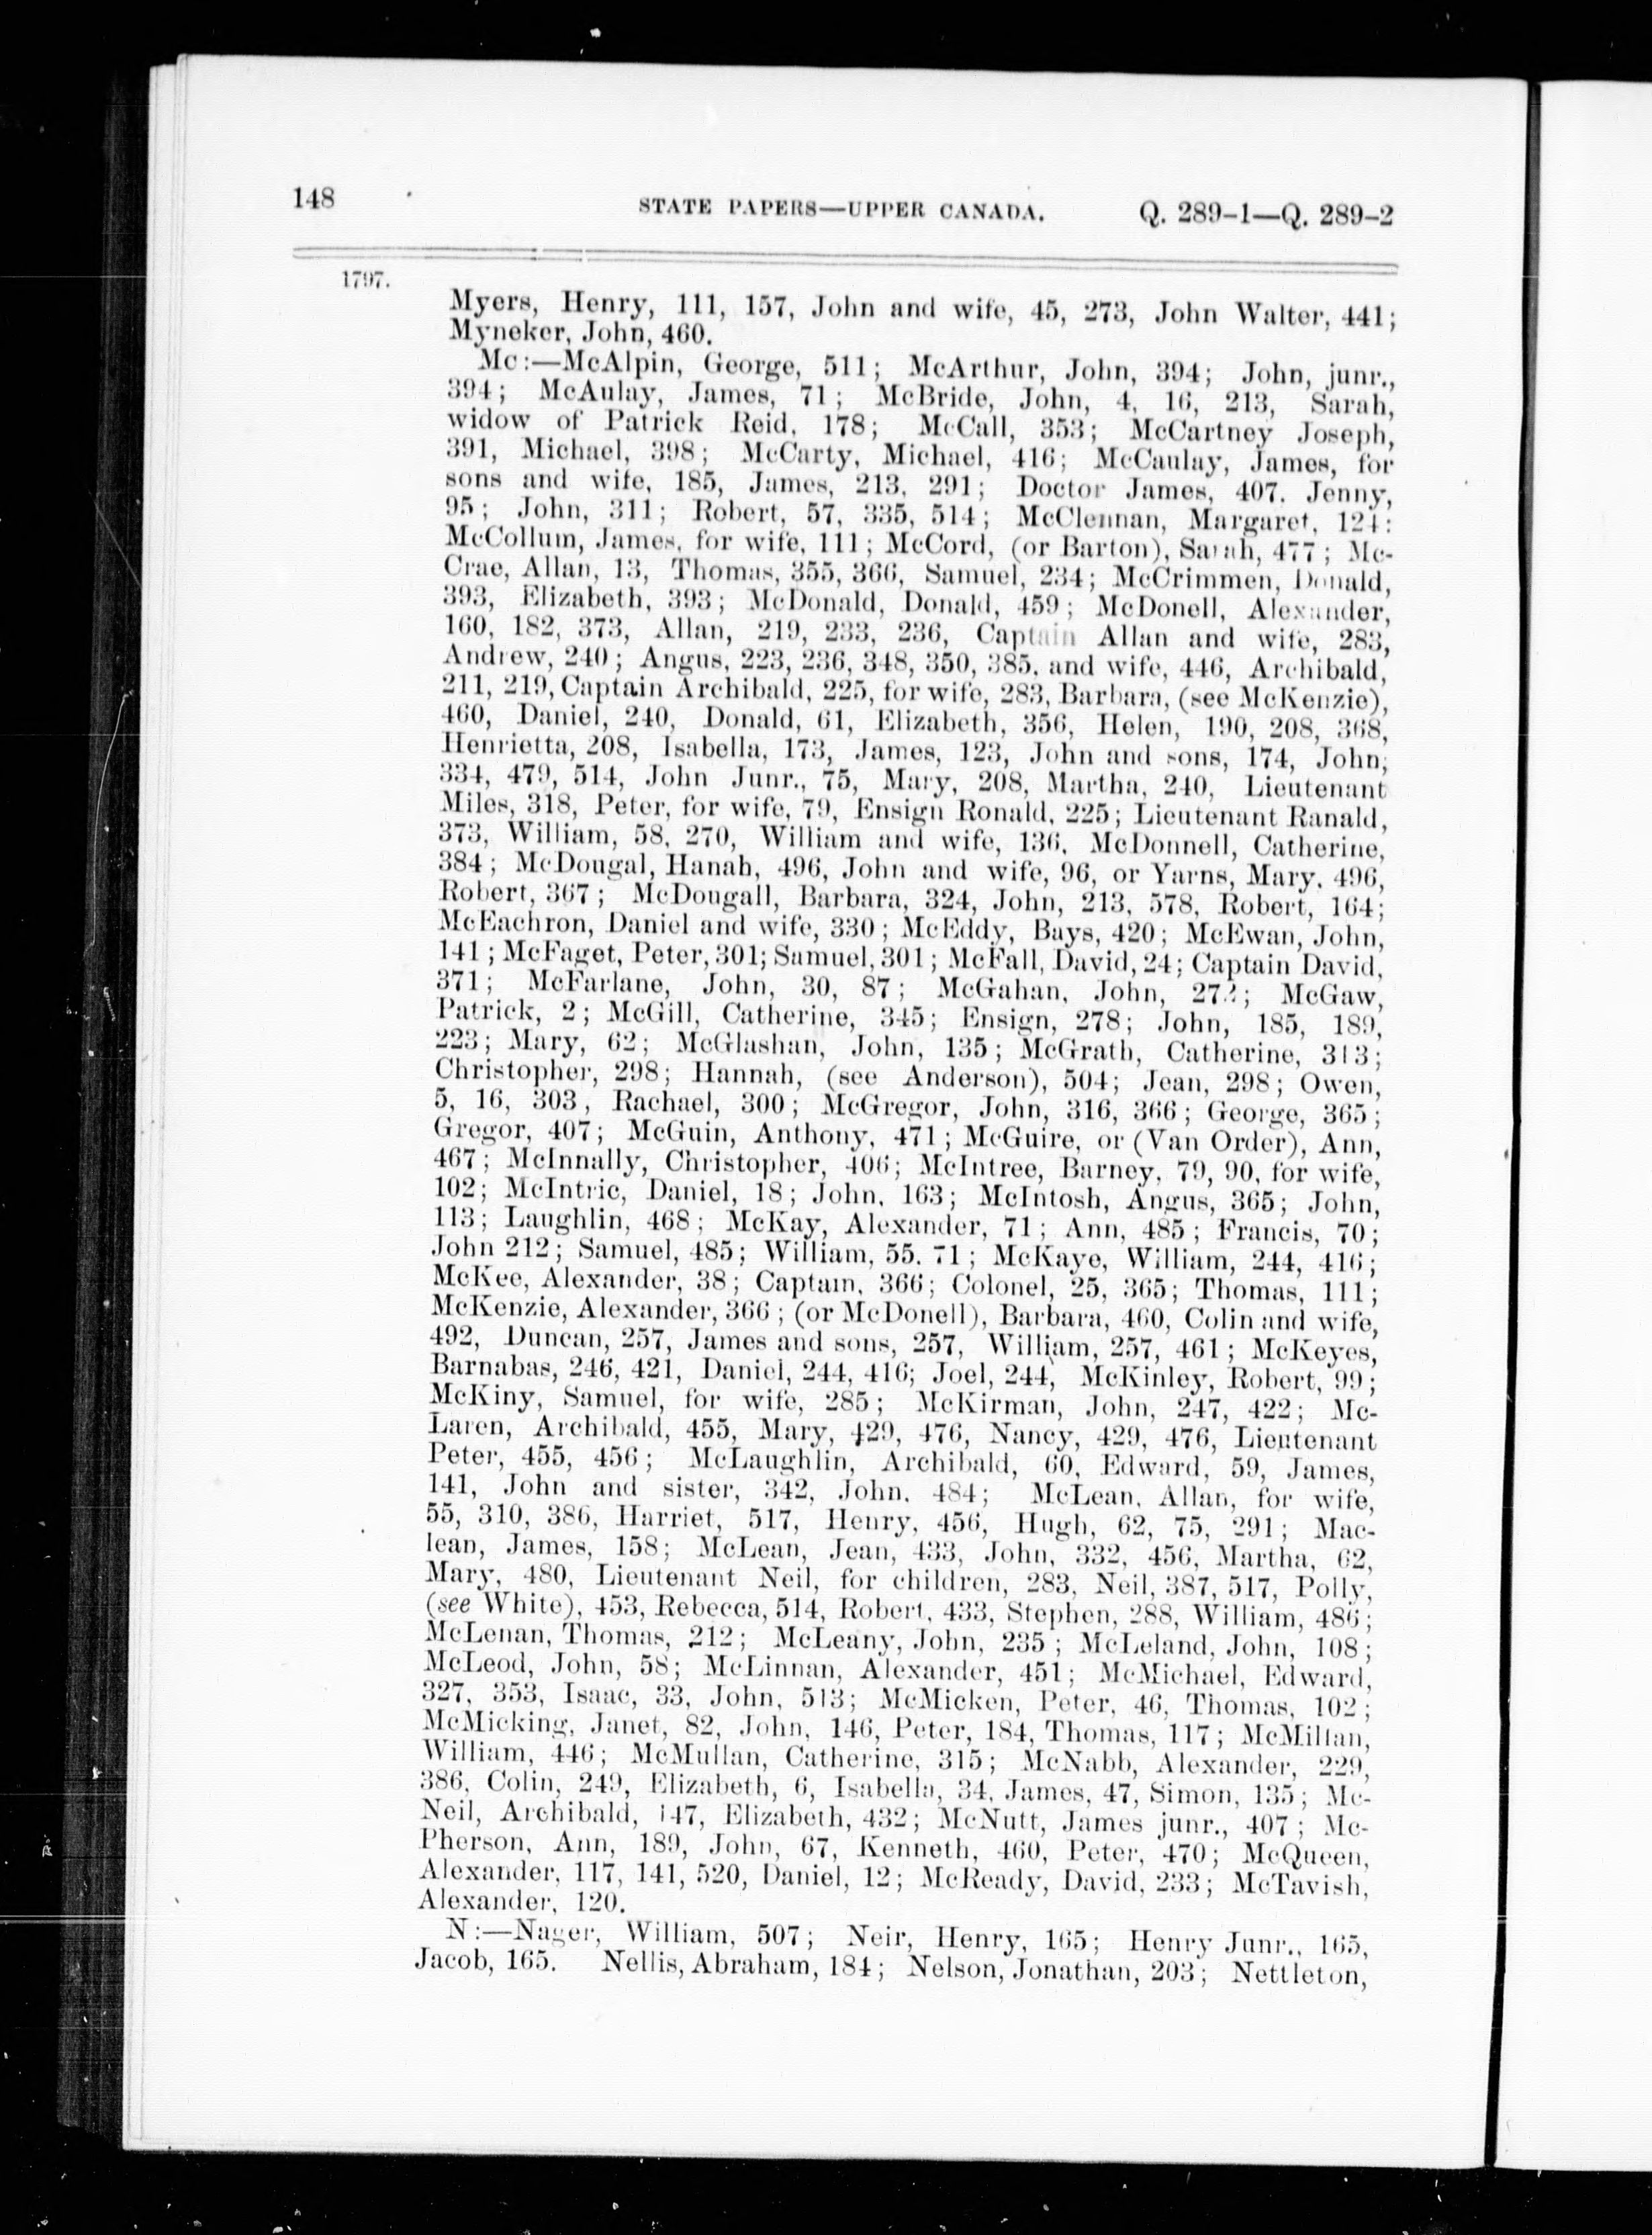 148 STATE PAPERS—UPPER CANADA. Q. 289-1—Q. 289-2
1797.
Myers, Henry, 111, 157, John and wife, 45, 273, John Walter, 441;
Myneker, John, 460.
Mc:—McAlpin, George, 511; McArthur, John, 394; John, junr.,
394; McAulay, James, 71; McBride, John, 4, 16, 213, Sarah,
widow of Patrick Reid, 178; McCall, 353; McCartney Joseph,
391, Michael, 398; McCarty, Michael, 416; McCaulay, James, for
sons and wife, 185, James, 213, 291; Doctor James, 407. Jenny,
95; John, 311; Robert, 57, 335, 514; McClennan, Margaret, 124:
McCollum, James, for wife, 111; McCord, (or Barton), Sarah, 477; Mc-
Crae, Allan, 13, Thomas, 355, 366, Samuel, 234; McCrimmen, Donald,
393, Elizabeth, 393; McDonald, Donald, 459; McDonell, Alexander,
160, 182, 373, Allan, 219, 233, 236, Captain Allan and wife, 283,
Andrew, 240; Angus, 223, 236, 348, 350, 385, and wife, 446, Archibald,
211, 219, Captain Archibald, 225, for wife, 283, Barbara, (see McKenzie),
460, Daniel, 240, Donald, 61, Elizabeth, 356, Helen, 190, 208, 368,
Henrietta, 208, Isabella, 173, James, 123, John and sons, 174, John;
334, 479, 514, John Junr., 75, Mary, 208, Martha, 240, Lieutenant
Miles, 318, Peter, for wife, 79, Ensign Ronald, 225; Lieutenant Ranald,
373, William, 58, 270, William and wife, 136, McDonnell, Catherine,
384; McDougal, Hanah, 496, John and wife, 96, or Yarns, Mary, 496,
Robert, 367; McDougall, Barbara, 324, John, 213, 578, Robert, 164;
McEachron, Daniel and wife, 330; McEddy, Bays, 420; McEwan, John,
141; McFaget, Peter, 301; Samuel, 301; McFall, David, 24; Captain David,
371; McFarlane, John, 30, 87; McGahan, John, 272; McGaw,
Patrick, 2; McGill, Catherine, 345; Ensign, 278; John, 185, 189,
223; Mary, 62; McGlashan, John, 135; McGrath, Catherine, 313;
Christopher, 298; Hannah, (see Anderson), 504; Jean, 298; Owen,
5, 16, 303, Rachael, 300; McGregor, John, 316, 366; George, 365;
Gregor, 407; McGuin, Anthony, 471; McGuire, or (Van Order), Ann,
467; McInnally, Christopher, 406; McIntree, Barney, 79, 90, for wife,
102; McIntric, Daniel, 18; John, 163; McIntosh, Angus, 365; John,
113; Laughlin, 468; McKay, Alexander, 71; Ann, 485; Francis, 70;
John 212; Samuel, 485; William, 55. 71; McKaye, William, 244, 416;
McKee, Alexander, 38; Captain, 366; Colonel, 25, 365; Thomas, 111;
McKenzie, Alexander, 366; (or McDonell), Barbara, 460, Colin and wife,
492, Duncan, 257, James and sons, 257, William, 257, 461; McKeyes,
Barnabas, 246, 421, Daniel, 244, 416; Joel, 244, McKinley, Robert, 99;
McKiny, Samuel, for wife, 285; McKirman, John, 247, 422; Mc-
Laren, Archibald, 455, Mary, 429, 476, Nancy, 429, 476, Lieutenant
Peter, 455, 456; McLaughlin, Archibald, 60, Edward, 59, James,
141, John and sister, 342, John. 484; McLean, Allan, for wife,
55, 310, 386, Harriet, 517, Henry, 456, Hugh, 62, 75, 291; Mac-
lean, James, 158; McLean, Jean, 433, John, 332, 456, Martha, 62,
Mary, 480, Lieutenant Neil, for children, 283, Neil, 387, 517, Polly,
(see White), 453, Rebecca, 514, Robert, 433, Stephen, 288, William, 486;
McLenan, Thomas, 212; McLeany, John, 235; McLeland, John, 108;
McLeod, John, 58; McLinnan, Alexander, 451; McMichael, Edward,
327, 353, Isaac, 33, John, 513; McMicken, Peter, 46, Thomas, 102;
McMicking, Janet, 82, John, 146, Peter, 184, Thomas, 117; McMillan,
William, 446; McMullan, Catherine, 315; McNabb, Alexander, 229,
386, Colin, 249, Elizabeth, 6, Isabella, 34, James, 47, Simon, 135; Mc-
Neil, Archibald, 147, Elizabeth, 432; McNutt, James junr., 407; Mc-
Pherson, Ann, 189, John, 67, Kenneth, 460, Peter, 470; McQueen,
Alexander, 117, 141, 520, Daniel, 12; McReady, David, 233; McTavish,
Alexander, 120.
N:—Nager, William, 507; Neir, Henry, 165; Henry Junr., 165,
Jacob, 165. Nellis, Abraham, 184; Nelson, Jonathan, 203; Nettleton,